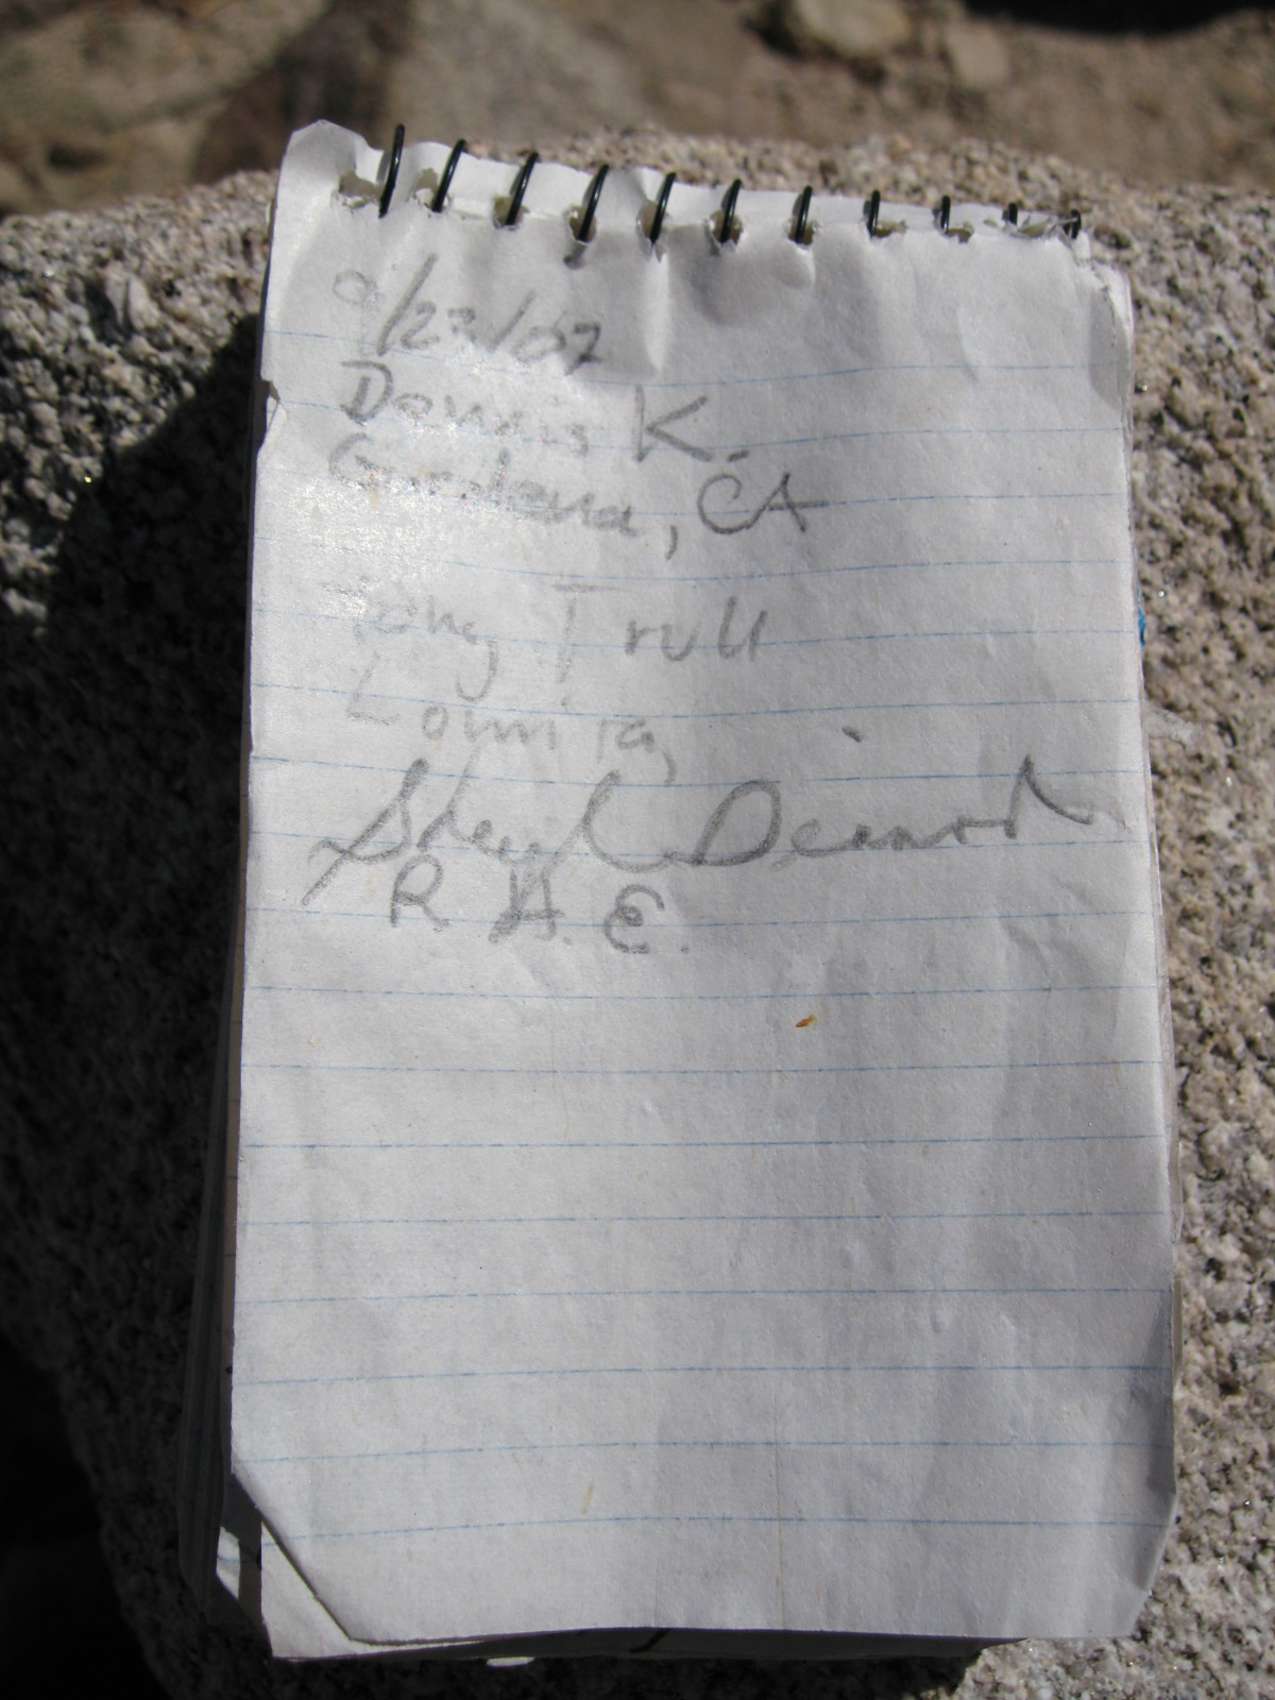 9/23/07
Dennis K.
Gardena, CA
Tony Trull
Lomita,
Sheryl
R. H. E.